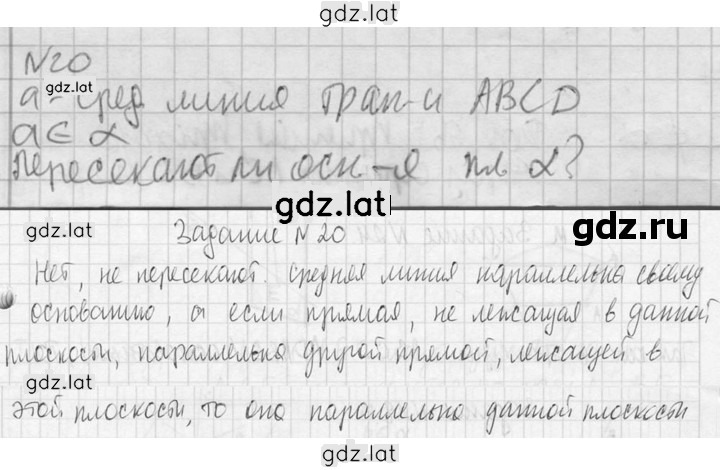 gdz.lat
№20
gdz.lat
a-сред линия трап-и ABCD
a∈α
пересекают ли осн-я пл α?
gdz.lat
gdz.lat
Задание №20
Нет, не пересекают. Средняя линия параллельна своему
основанию, а если прямая, не лежащая в данной
плоскости, параллельна другой прямой, лежащей в
gdz.lat
этой плоскости, то она параллельна данной плоскости
gdz.lat